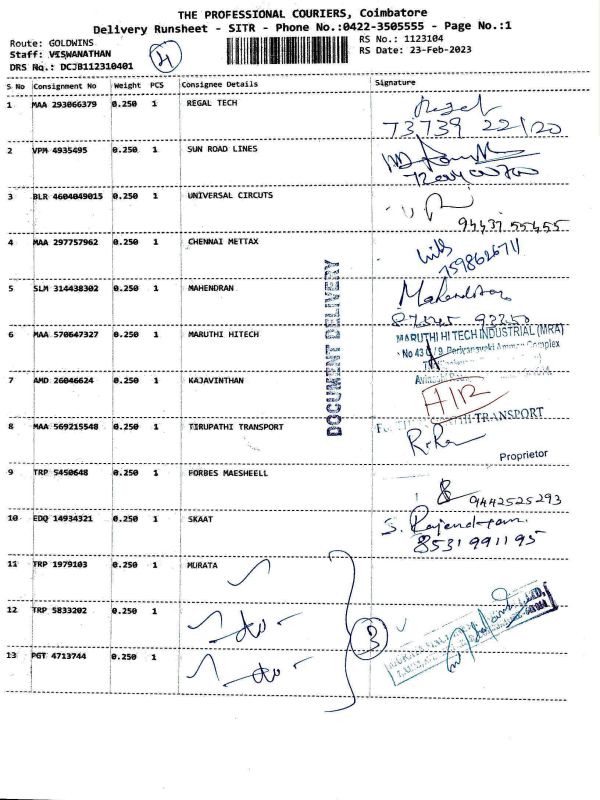 THE PROFESSIONAL COURIERS, Coimbatore
Delivery Runsheet - SITR - Phone No.:0422-3505555 - Page No.:1
Route: GOLDWINS
Staff: VISWANATHAN
DRS No.: DCJB112310401
4
RS No.: 1123104
RS Date: 23-Feb-2023
S No Consignment No Weight PCS Consignee Details Signature
1 MAA 293066379 0.250 1 REGAL TECH Regal
73739 22120
2 VPM 4935495 0.250 1 SUN ROAD LINES
3 BLR 4604049015 0.250 1 UNIVERSAL CIRCUTS
94437 55455
4 MAA 297757962 0.250 1 CHENNAI METTAX
7598626711
5 SLM 314438302 0.250 1 MAHENDRAN Mahendran
DOCUMENT DELIVERY
6 MAA 570647327 0.250 1 MARUTHI HITECH MARUTHI HI TECH INDUSTRIAL (MRA)
No 43 Complex
7 AMD 26046624 0.250 1 KAJAVINTHAN
8 MAA 569215548 0.250 1 TIRUPATHI TRANSPORT TRANSPORT
Proprietor
9 TRP 5450648 0.250 1 FORBES MAESHEELL
9442525293
10 EDQ 14934321 0.250 1 SKAAT S. Rajendran
8531991195
11 TRP 1979103 0.250 1 MURATA
12 TRP 5833202 0.250 1 -do-
3
13 PGT 4713744 0.250 1 -do-